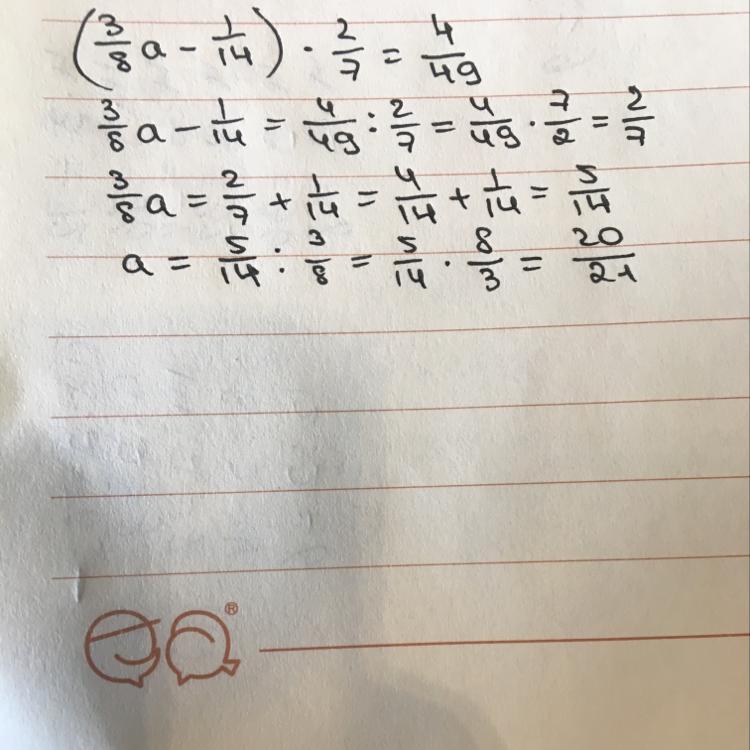 (3/8 a - 1/14) · 2/7 = 4/49
3/8 a - 1/14 = 4/49 : 2/7 = 4/49 · 7/2 = 2/7
3/8 a = 2/7 + 1/14 = 4/14 + 1/14 = 5/14
a = 5/14 : 3/8 = 5/14 · 8/3 = 20/21
®